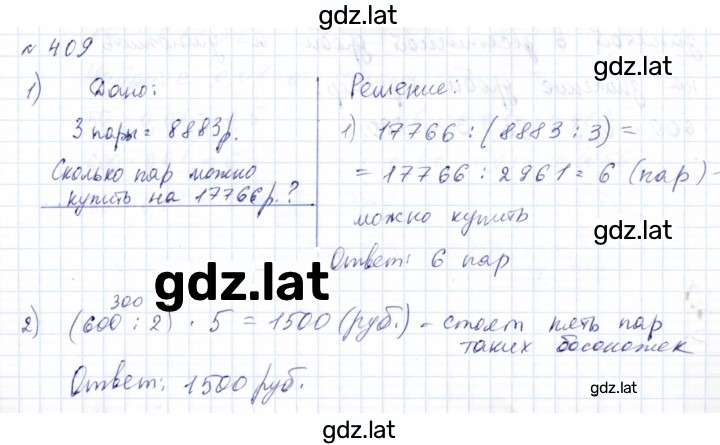 gdz.lat
№ 409
gdz.lat
1) Дано:
3 пары = 8883р.
Сколько пар можно
купить на 17766р.?
Решение:
1) 17766 : (8883 : 3) =
= 17766 : 2961 = 6 (пар) –
можно купить
Ответ: 6 пар
gdz.lat
gdz.lat
300
2) (600 : 2) · 5 = 1500 (руб.) – стоят пять пар
таких босоножек
Ответ: 1500 руб.
gdz.lat
gdz.lat